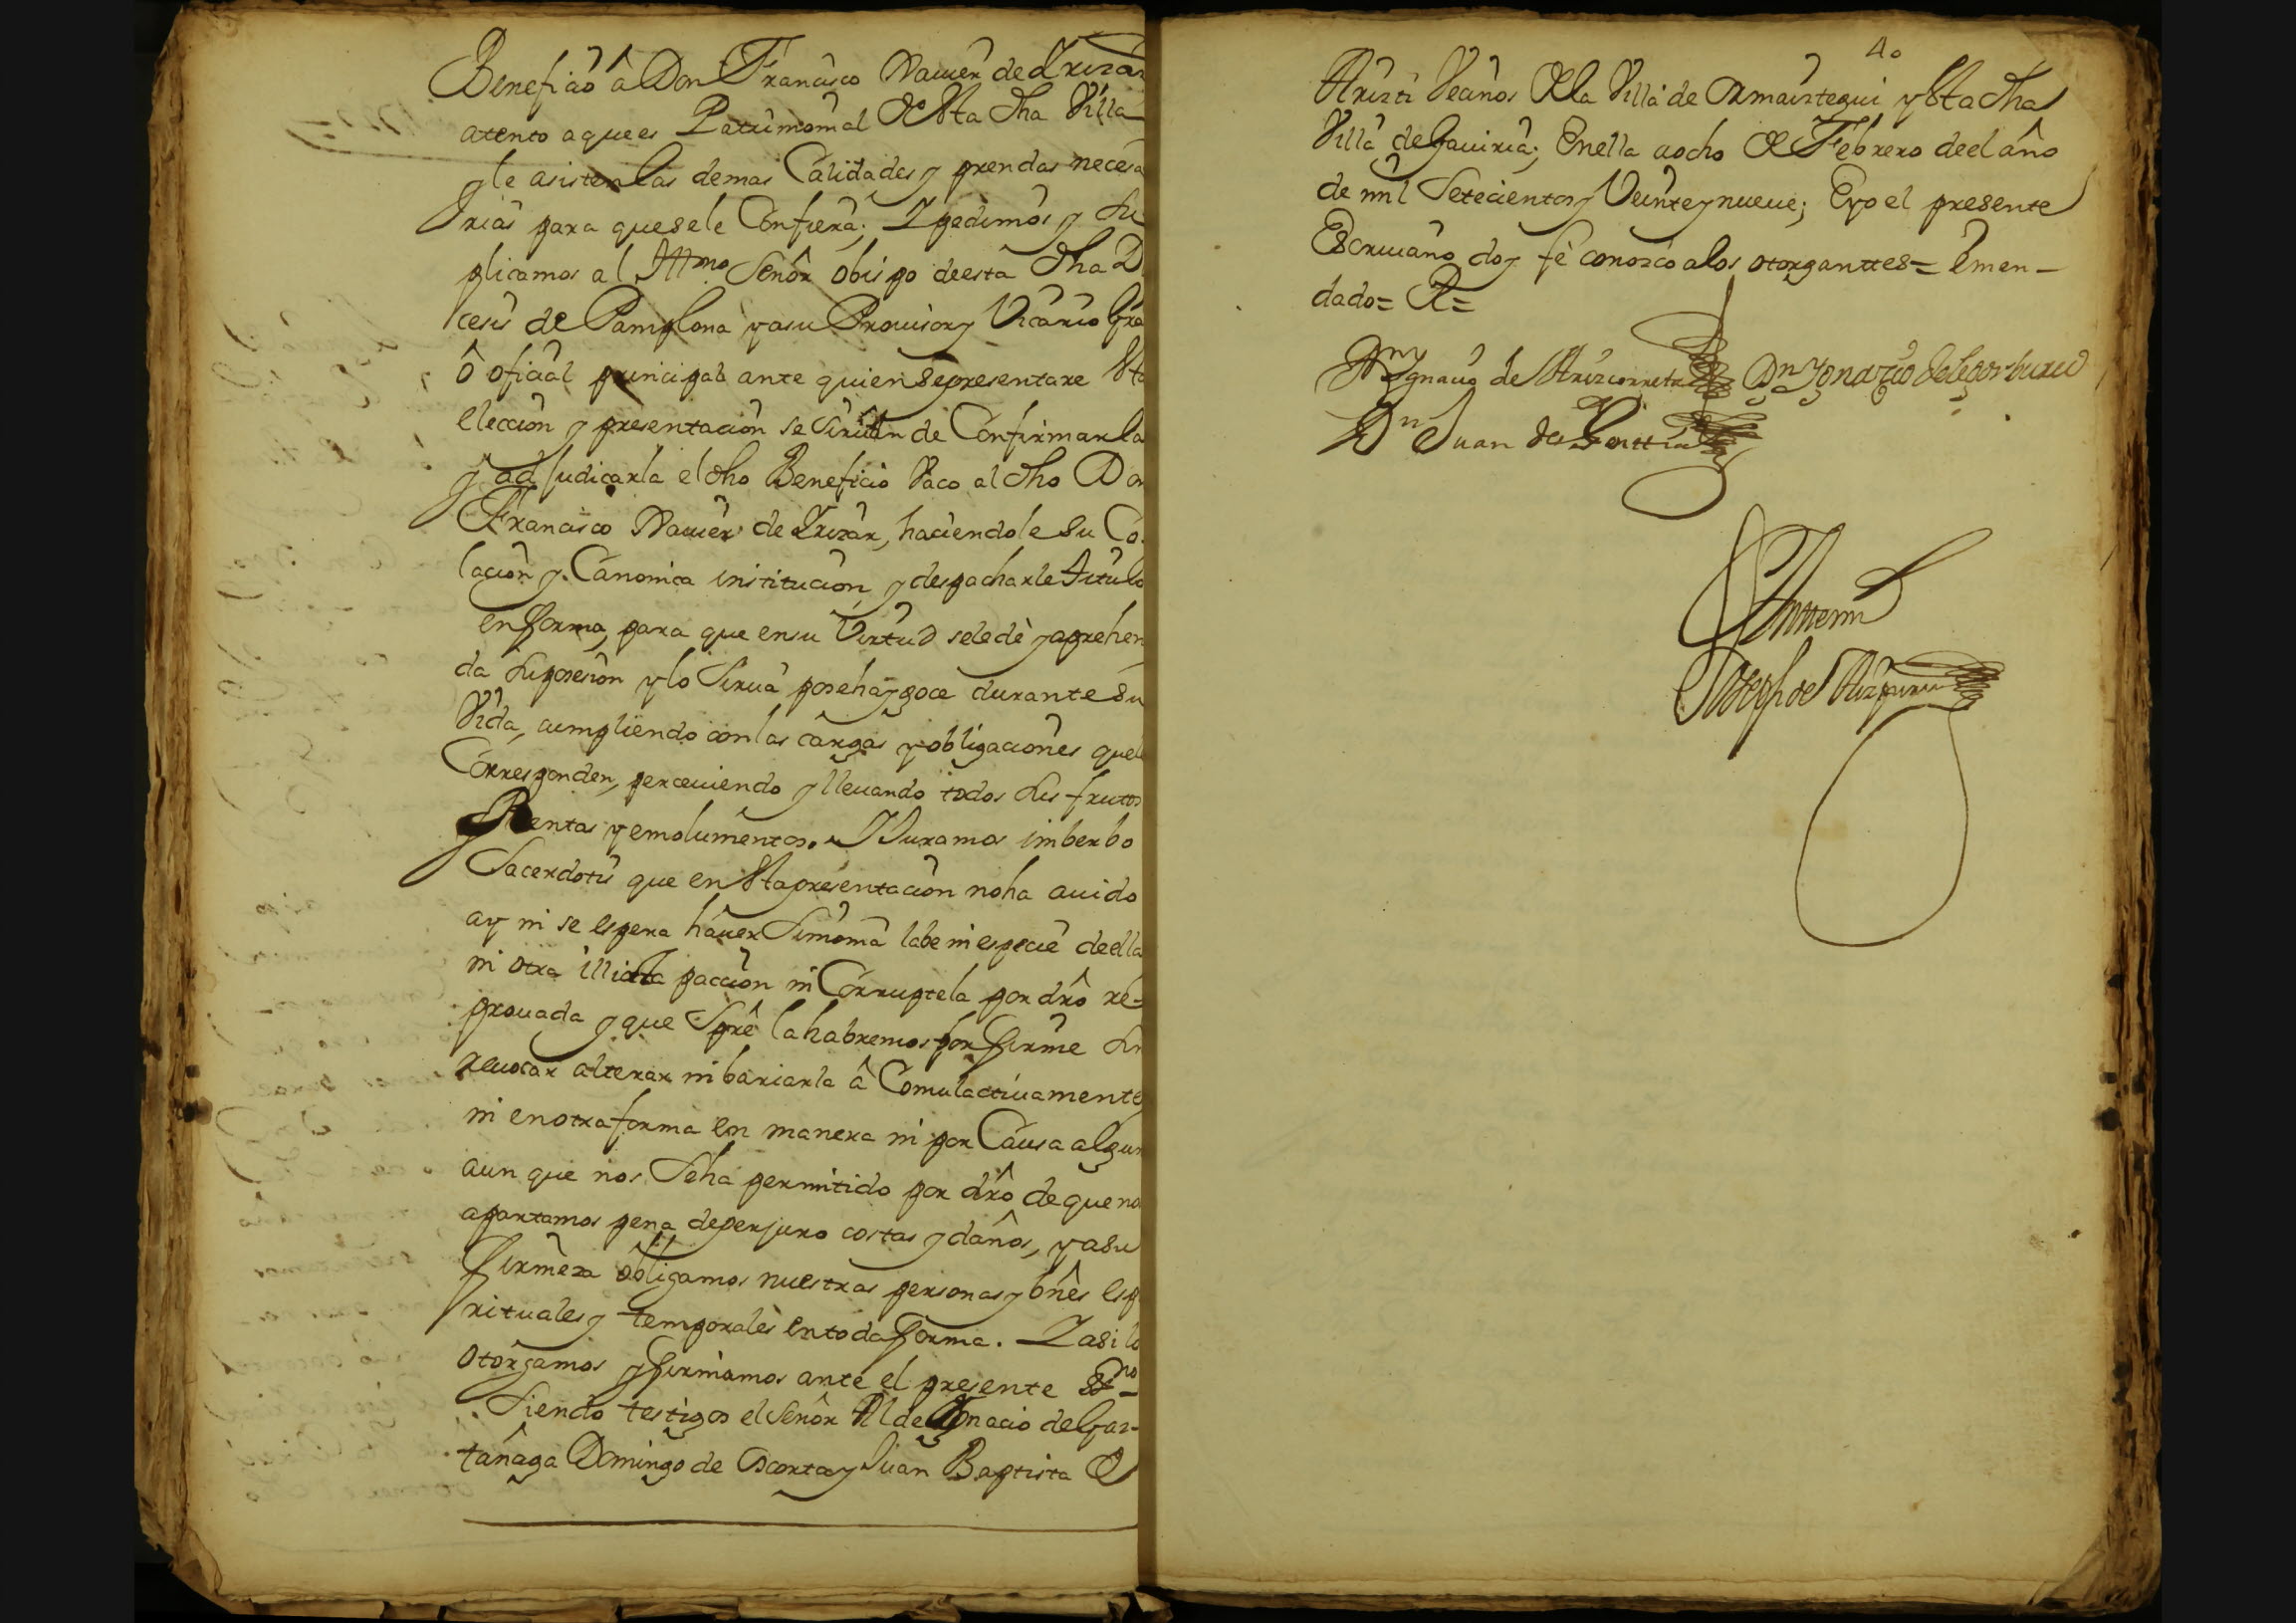 Beneficio â Don Francisco Xauier de Yrizar
atento a que es Patrimonial de sta dha Villa
y le asisten las demas Calidades y prendas necesa
rias para que se le Confiera; Y pedimos y Su
plicamos al Illmo Señor obispo de esta dha D
cesis de Pamplona y a su Prouisor y Vicario Gra
ô oficial principal ante quien se presentare sta
eleccion y presentacion se siruan de Confirmarla
y adjudicarla el dho Beneficio Vaco al dho Don
Francisco Xauier de Yrizar, haciendole su Co
lacion y Canonica institucion, y despacharle titulo
en forma, para que en su Virtud se le dè y aprehen
da su posesion y lo sirua poseha y goce durante su
Vida, cumpliendo con las cargas y obligaciones que le
Corresponden, perceuiendo y lleuando todos sus frutos
Rentas y emolumentos. Y Juramos in berbo
Sacerdotis que en sta presentacion no ha auido
ay ni se espera hauer Simonia labe ni especie de ella
ni otra illicita paccion ni Corruptela por drô re=
prouada y que Sprê la habremos por firme sin
reuocar alterar ni bariarla â Comulactiuamente
ni en otra forma en manera ni por Causa algun
aun que nos Seha permitido por drô de que no
apartamos pena de perjuro costas y daños, y a su
firmeza obligamos nuestras personas y bnês esp
rituales y temporales en toda forma. Y asi lo
otorgamos y firmamos ante el presente Ssno
Siendo testigos el Señor Alde Ygnacio de Gar=
tañaga Domingo de Ascorta y Juan Baptista de
40
Aristi Vecinos de la Villa de Ormaiztegui y sta dha
Villa de Gauiria; En ella a ocho de Febrero de el año
de mil Setecientos y Veinte y nueue; E yo el presente
Escriuano doy fè conozco a los otorganttes= Emen-
dado= R=
Dn Ygnacio de Arizcorreta Dn Ygnazio de Legorburu
Dn Juan de
Antemi
Joseph de Aizpuru